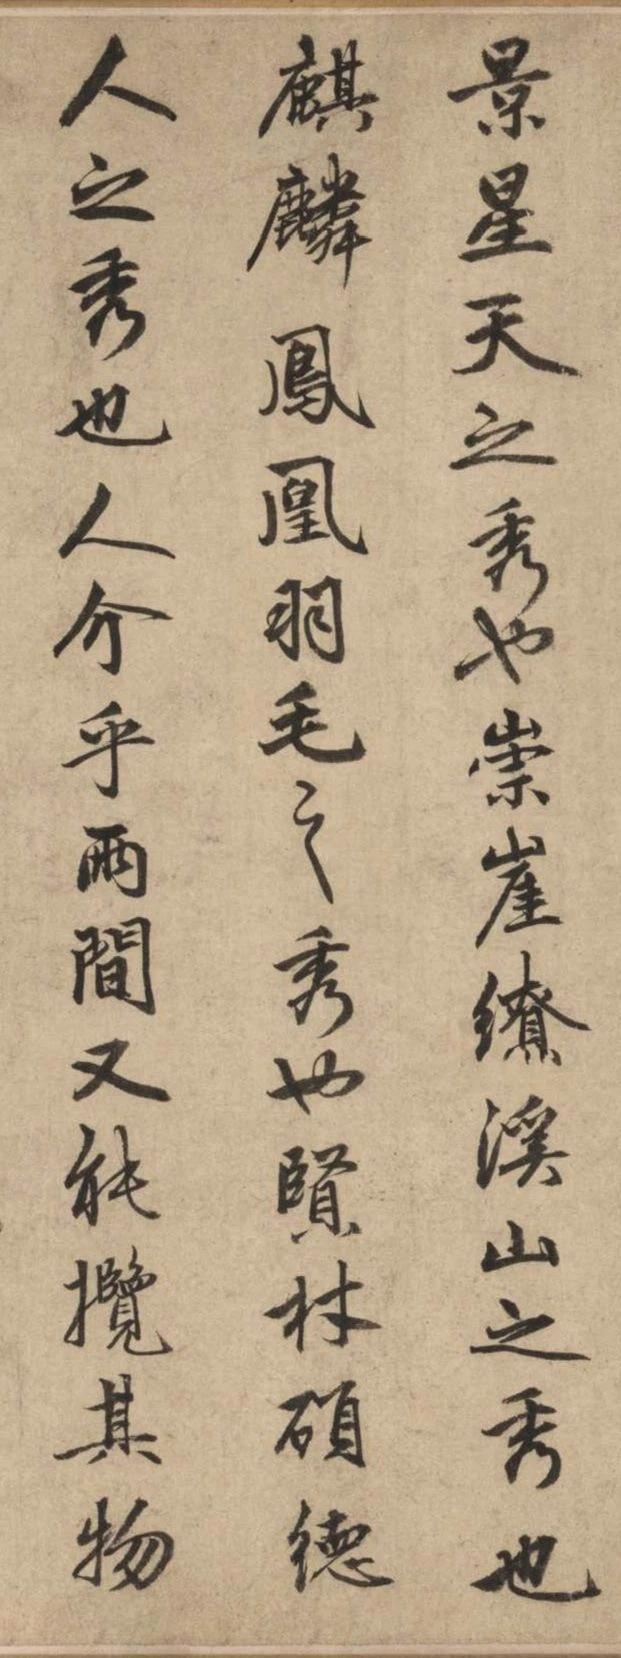 景星天之秀也崇崖繚溪山之秀也
麒麟鳳凰羽毛之秀也賢材碩德
人之秀也人介乎兩間又能攬其物